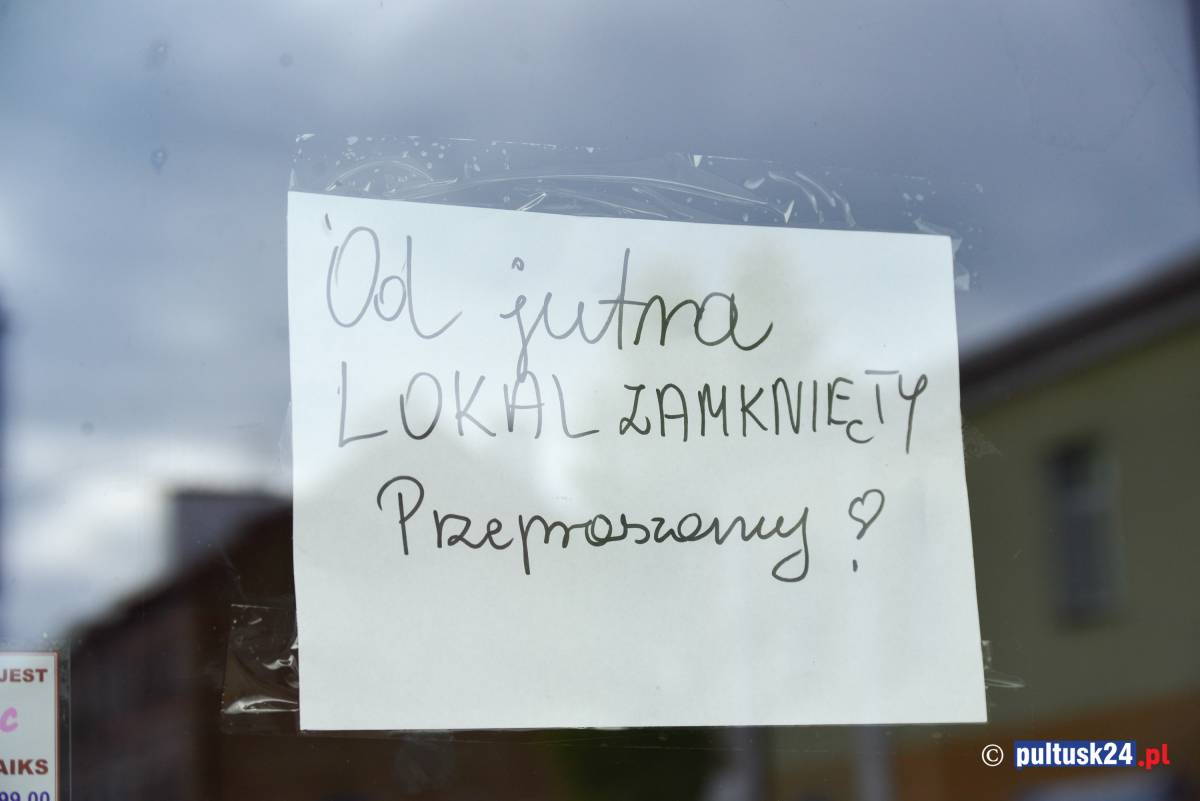 Od jutra
LOKAL ZAMKNIĘTY
Przepraszamy
JEST
C
AIKS
99,00
© pultusk24.pl